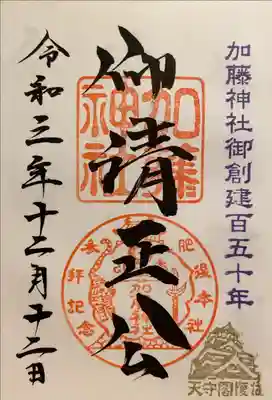 加藤神社御創建百五十年
仰清正公
令和三年十二月十二日
加藤神社
肥後本社
参拝記念
天守閣復